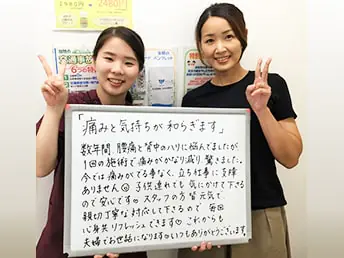 「痛みと気持ちが和らぎます」
数年間 腰痛と背中のハリに悩んでましたが、
1回の施術で痛みがかなり減り驚きました。
今では痛みがでる事なく、立ち仕事に支障
ありません☺ 子供連れでも気にかけて下さる
ので安心です☺ スタッフの方皆元気で
親切丁寧な対応して下さるので 毎回
心身共リフレッシュできます♡ これからも
夫婦でお世話になります♡ いつもありがとうございます。